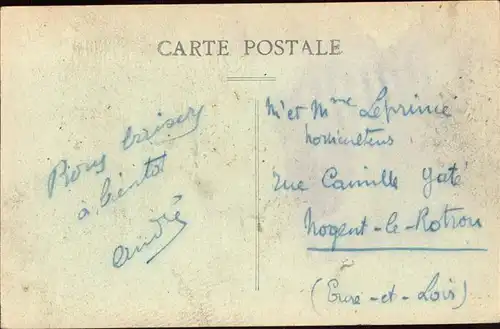 CARTE POSTALE
baisers
à bientôt
André
M' et Mme Leprince
horticulteurs
rue Camille Gaté
Nogent-le-Rotrou
(Eure-et-Loir)